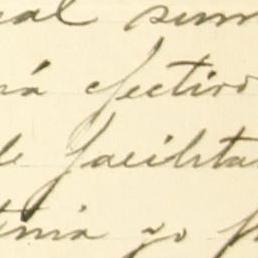 al sum
rá efectivo
de facilita
tinia yo p